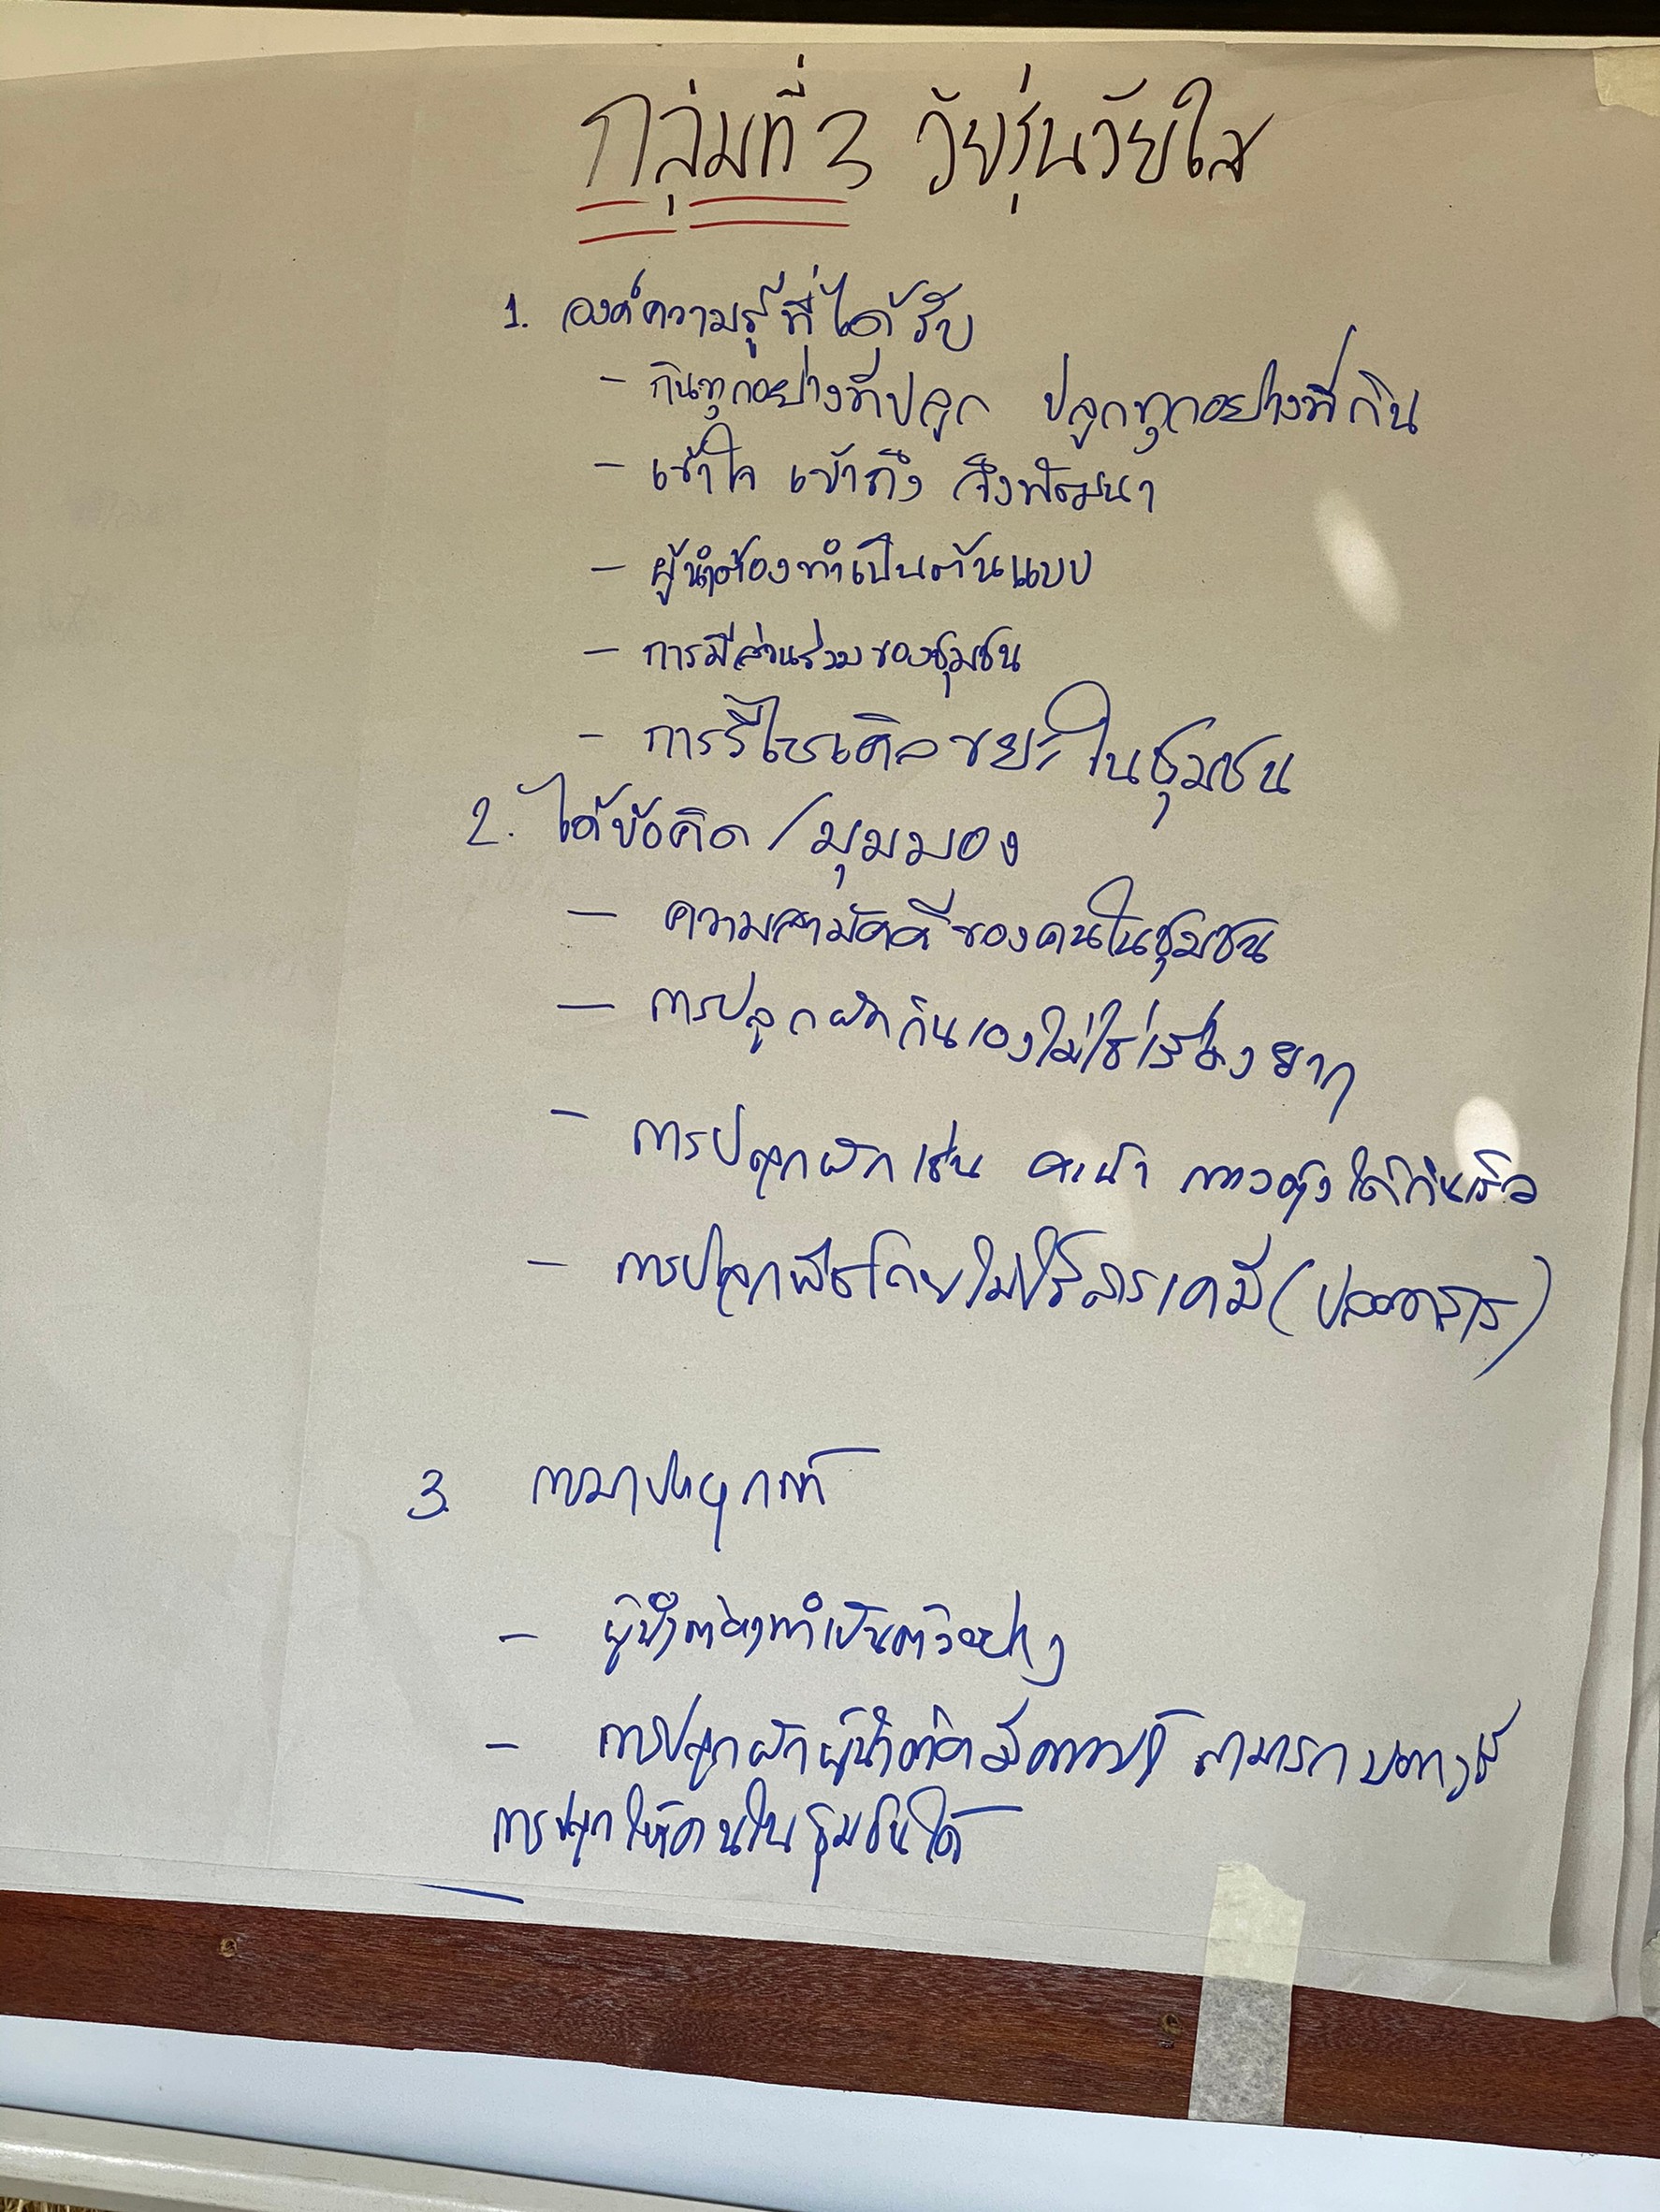 กลุ่มที่ 3 วัยรุ่นวัยใส
1. องค์ความรู้ที่ได้รับ
- กินทุกอย่างที่ปลูก ปลูกทุกอย่างที่กิน
- เข้าใจ เข้าถึง จึงพัฒนา
- ผู้นำต้องทำเป็นต้นแบบ
- การมีส่วนร่วมของชุมชน
- การรีไซเคิลขยะในชุมชน
2. ได้ข้อคิด / มุมมอง
- ความสามัคคีของคนในชุมชน
- การปลูกผักกินเองไม่ใช่เรื่องยาก
- การปลูกผัก เช่น คะน้า กวางตุ้ง ได้กินเร็ว
- การปลูกพืชโดยไม่ใช้สารเคมี (ปลอดสาร)
3. การมาประยุกต์
- ผู้นำต้องทำเป็นตัวอย่าง
- การปลูกผักผู้นำต้องมีความรู้ สามารถ
การปลูกให้คนในชุมชนได้